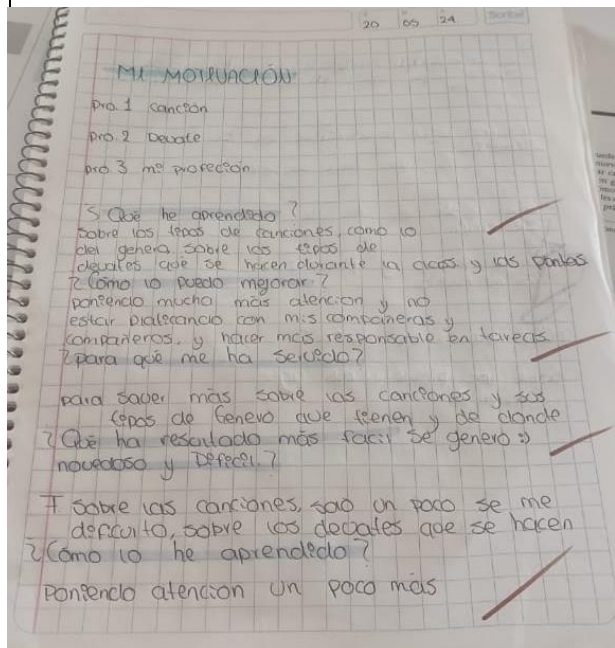 20 05 24
MI MOTIVACIÓN
pro. 1 canción
pro. 2 Devate
pro. 3 mi profeción
¿Qué he aprendido?
sobre los tipos de canciones, como lo
del genero sobre los tipos de
devates que se hacen durante la and y los
¿Cómo lo puedo mejorar?
poniendo mucha más atencion y no
estar platicancio con mis compañeras y
compañeros. y hacer más responsable en tareas
¿para qué me ha servido?
para saver más sobre las canciones y sus
tipos de Genero que tienen y de donde
¿Qué ha resultado más facil se genero :)
novedoso y Dificil?
sobre las canciones, solo un poco se me
dificulto, sobre los devates que se hacen
¿Cómo lo he aprendido?
poniendo atencion un poco más